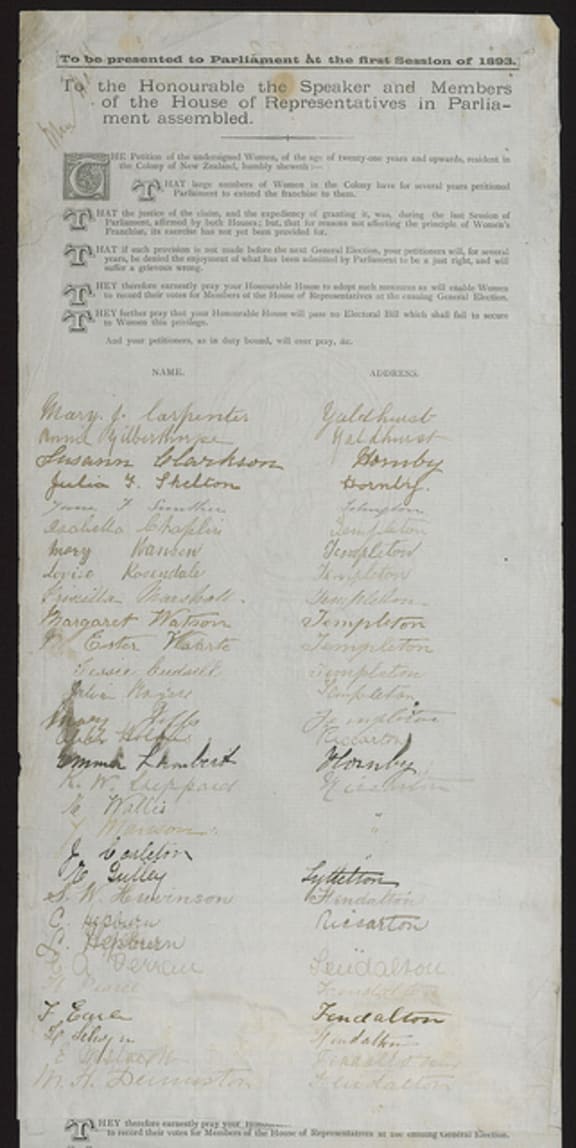 To be presented to Parliament at the first Session of 1893.
To the Honourable the Speaker and Members
of the House of Representatives in Parlia-
ment assembled.
THE Petition of the undersigned Women, of the age of twenty-one years and upwards, resident in
the Colony of New Zealand, humbly sheweth:—
THAT large numbers of Women in the Colony have for several years petitioned
Parliament to extend the franchise to them.
THAT the justice of the claim, and the expediency of granting it, was, during the last Session of
Parliament, affirmed by both Houses; but, that for reasons not affecting the principle of Women's
Franchise, its exercise has not yet been provided for.
THAT if such provision is not made before the next General Election, your petitioners will, for several
years, be denied the enjoyment of what has been admitted by Parliament to be a just right, and will
suffer a grievous wrong.
THEY therefore earnestly pray your Honourable House to adopt such measures as will enable Women
to record their votes for Members of the House of Representatives at the ensuing General Election.
THEY further pray that your Honourable House will pass no Electoral Bill which shall fail to secure
to Women this privilege.
And your petitioners, as in duty bound, will ever pray, &c.
NAME. ADDRESS.
Mary J. Carpenter Yaldhurst
Annie Gilberthorpe Yaldhurst
Susann Clarkson Hornby
Julia F. Skelton Hornby.
Isabella Chaplin Templeton
Mary Hansen Templeton
Louise Rosendale Templeton
Priscilla Marshall. Templeton
Margaret Watson Templeton
M Ester Templeton
Templeton
Templeton
Mary Templeton
Riccarton
Emma Lambert Hornby
K. W. Sheppard Riccarton
E Wallis "
Manson "
J Carleton "
E Gulley Lyttelton
S. W. Fendalton
C. Hepburn Riccarton
C. Hepburn
Fendalton
Pearce Fendalton
F Fendalton
Fendalton
M. H. Fendalton
THEY therefore earnestly pray your
to record their votes for Members of the House of Representatives at the ensuing General Election.